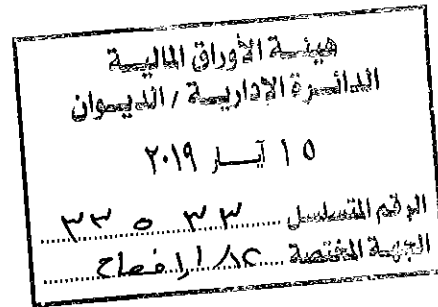 هيئـة الأوراق الماليـة
الدائـرة الإداريـة / الديـوان
١٥ آيـار ٢٠١٩
الرقم المتسلسل ٣٣ ٥ ٣٣
الجهـة المختصة الإفصاح